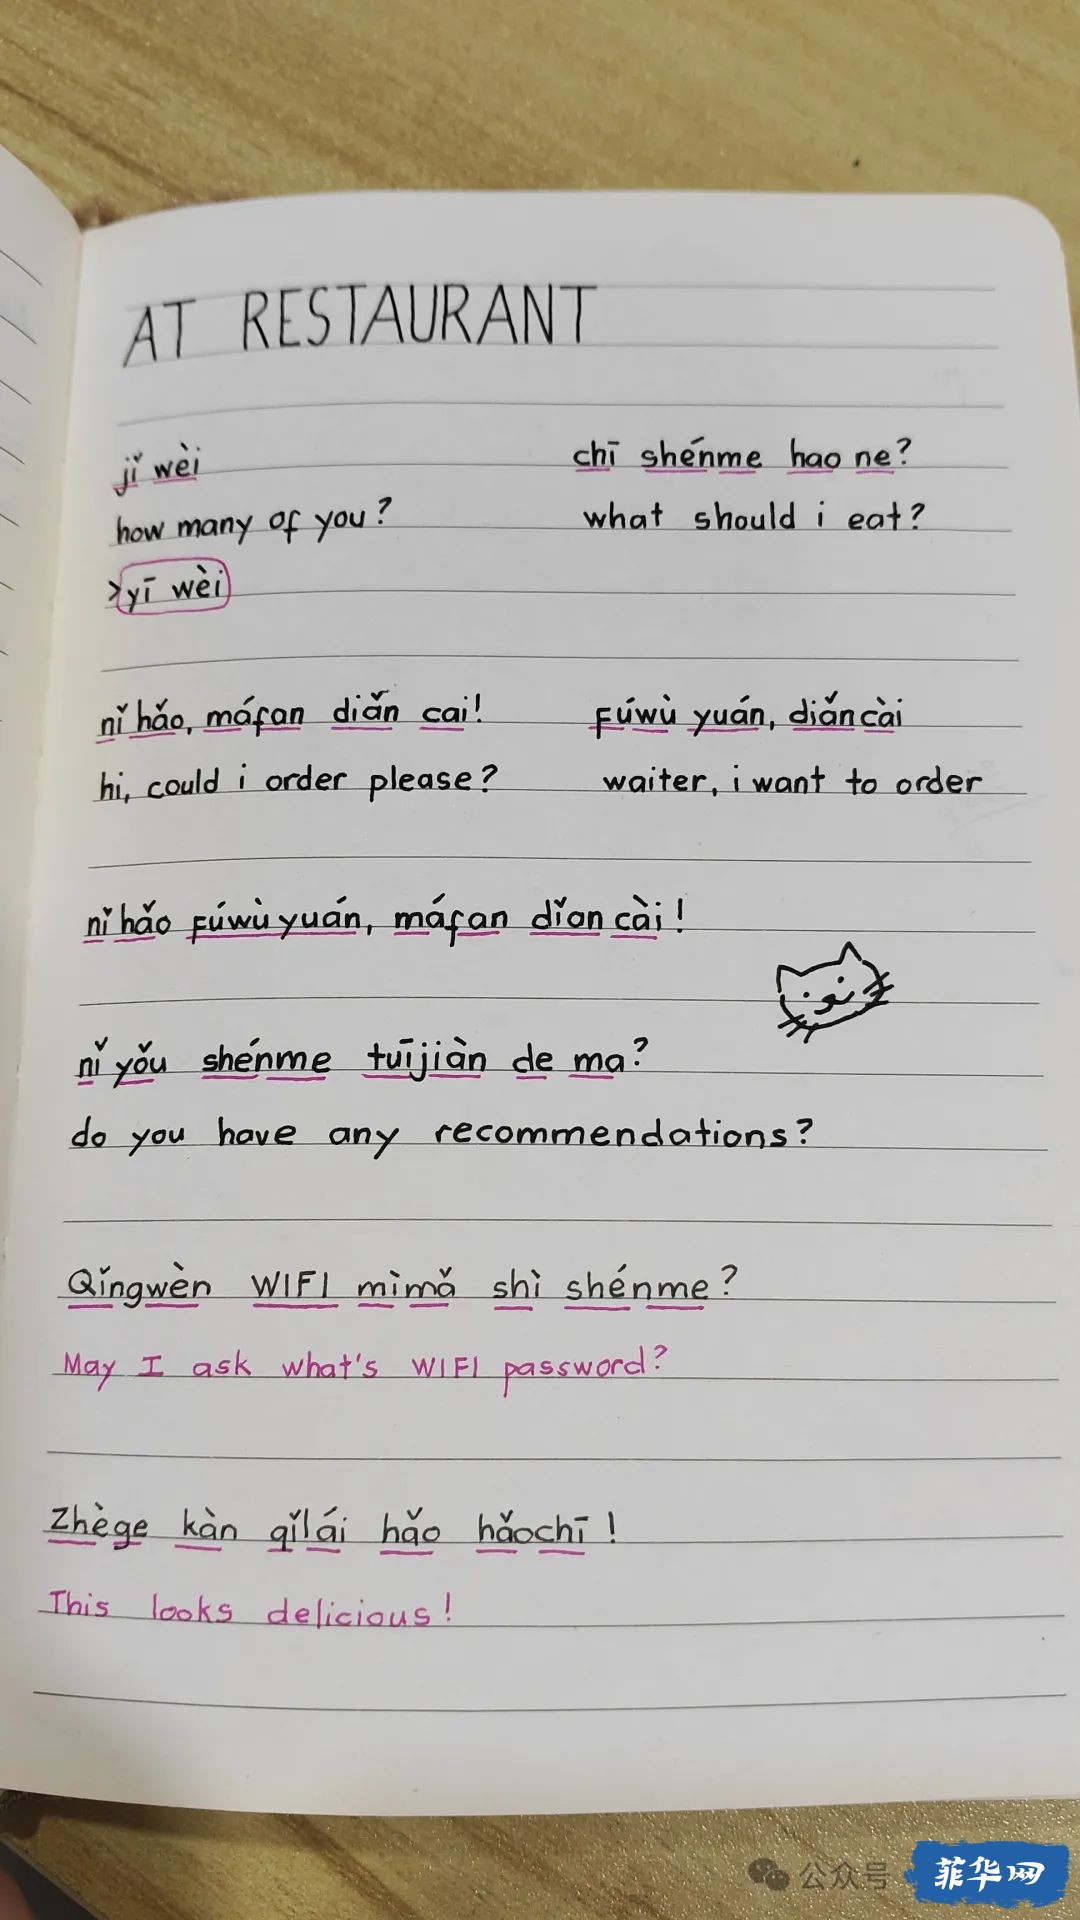 AT RESTAURANT
jǐ wèi
how many of you?
>yī wèi
chī shénme hao ne?
what should i eat?
nǐ hǎo, máfan diǎn cai!
hi, could i order please?
fúwù yuán, diǎncài
waiter, i want to order
nǐ hǎo fúwù yuán, máfan dǐan cài!
nǐ yǒu shénme tuījiàn de ma?
do you have any recommendations?
Qǐngwèn WIFI mìmǎ shì shénme?
May I ask what's WIFI password?
Zhège kàn qǐlái hǎo hǎochī!
This looks delicious!
公众号
菲华网